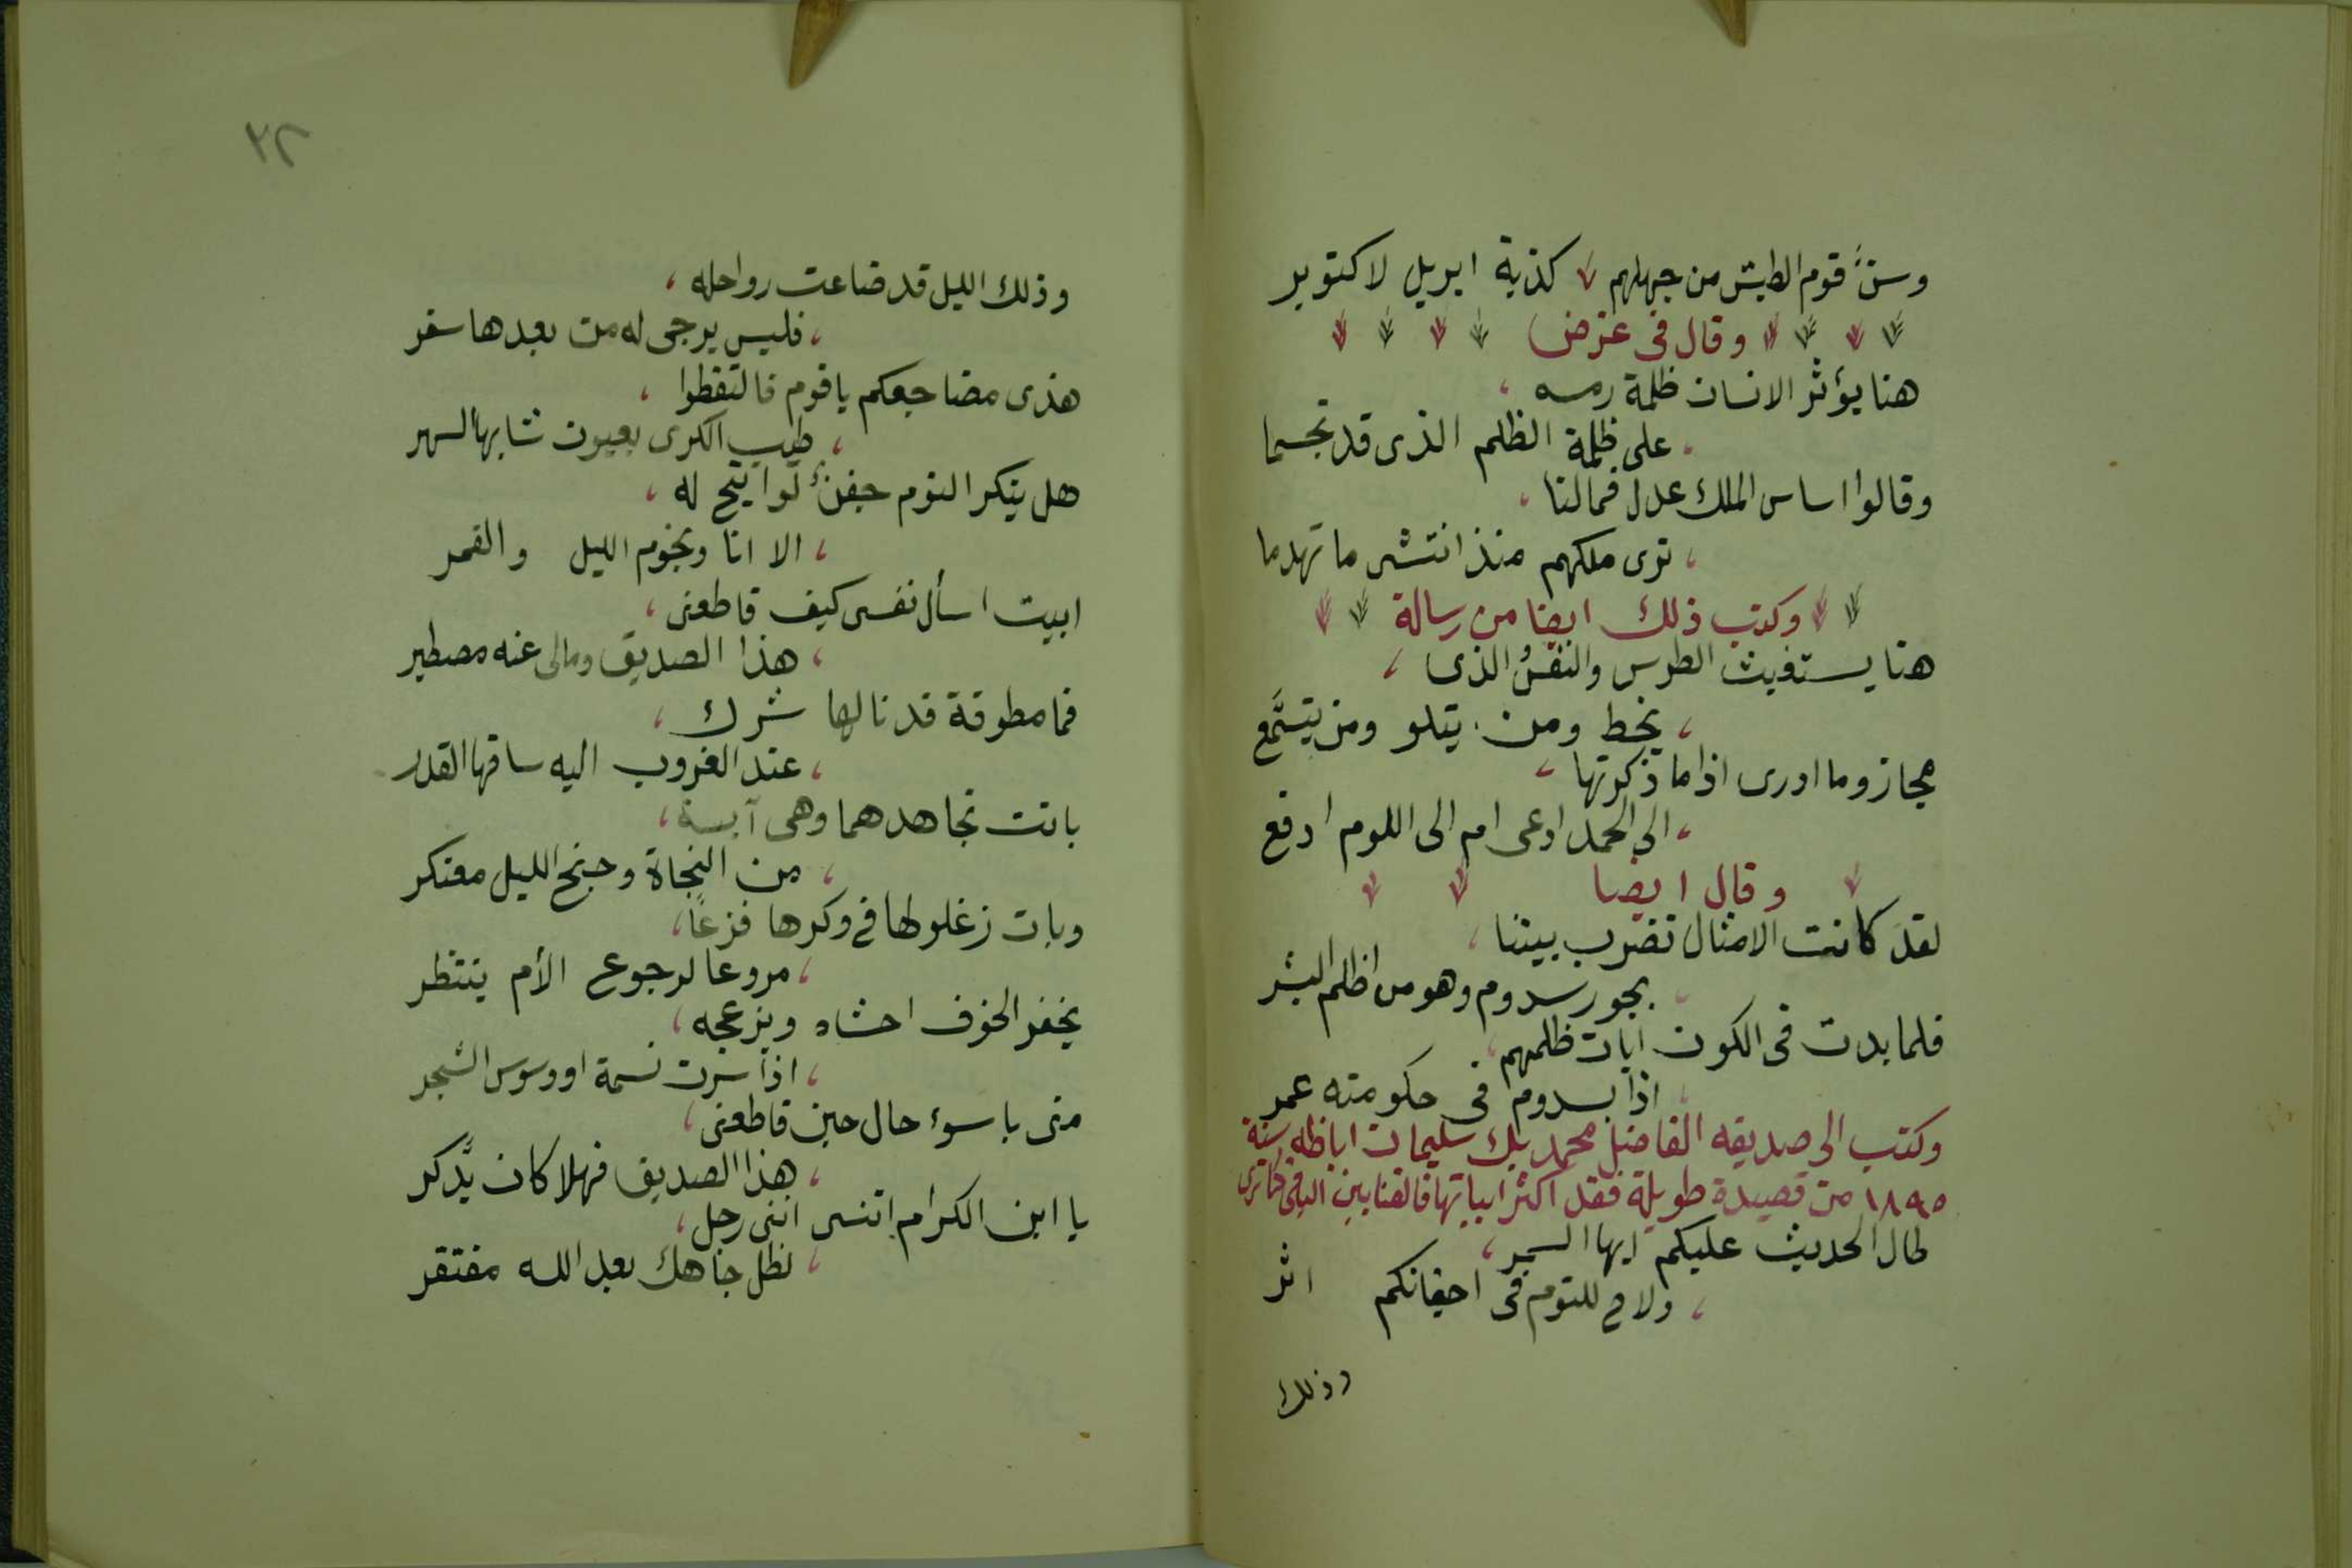 وسنَّ قوم الطيش من جهلهم كذبة ابريل لاكتوبر
وقال فى غرض
هنا يؤثر الانسان ظلمة رمسه
على ظلمة الظلم الذى قد تجسما
وقالوا اساس الملك عدل فمالنا
نرى ملكهم منذ انتشى ما تهدما
وكتب ذلك ايضا من رسالة
هنا يستغيث الطرس والنقسُ الذى
يخط ومن يتلو ومن يتسَّمع
مجاز وما ادرى اذا ما ذكرتها
الى الحمد ادعى ام الى اللوم ادفع
وقال ايضا
لقد كانت الامثال تضرب بيننا
بجور سدوم وهو من اظلم البشر
فلما بدت فى الكون ايات ظلمهم
اذا بسدوم فى حكومته عمر
وكتب الى صديقه الفاضل محمد بك سليمان اباظه سنة
١٨٩٥ من قصيدة طويلة فقد اكثر ابياتها فالفنا بين الباقى كما ترى
طال الحديث عليكم ايها السمر
ولاح للنوم فى اجفانكم اثر
وذلك
٢٢
وذلك الليل قد ضاعت رواحله
فليس يرجى له من بعدها سفر
هذى مضاجعكم يا قوم فالتقطوا
طيب الكرى بعيون شابها السهر
هل ينكر النوم جفنٌ لو اتيح له
الا انا ونجوم الليل والقمر
ابيت اسأل نفسى كيف قاطعنى
هذا الصديق ومالى عنه مصطبر
فما مطوقة قد نالها شرك
عند الغروب اليه ساقها القدر
باتت تجاهد هما وهى آيسة
من النجاة وجنح الليل معتكر
وبات زغلولها فى وكرها فزعًا
مروعا لرجوع الأم ينتظر
يحفز الخوف احشاه ويزعجه
اذا سرت نسمة او وسوس الشجر
منى باسوء حال حين قاطعنى
هذا الصديق فهلا كان يدَّكر
يا ابن الكرام اتنسى اننى رجل
لظل جاهك بعد الله مفتقر